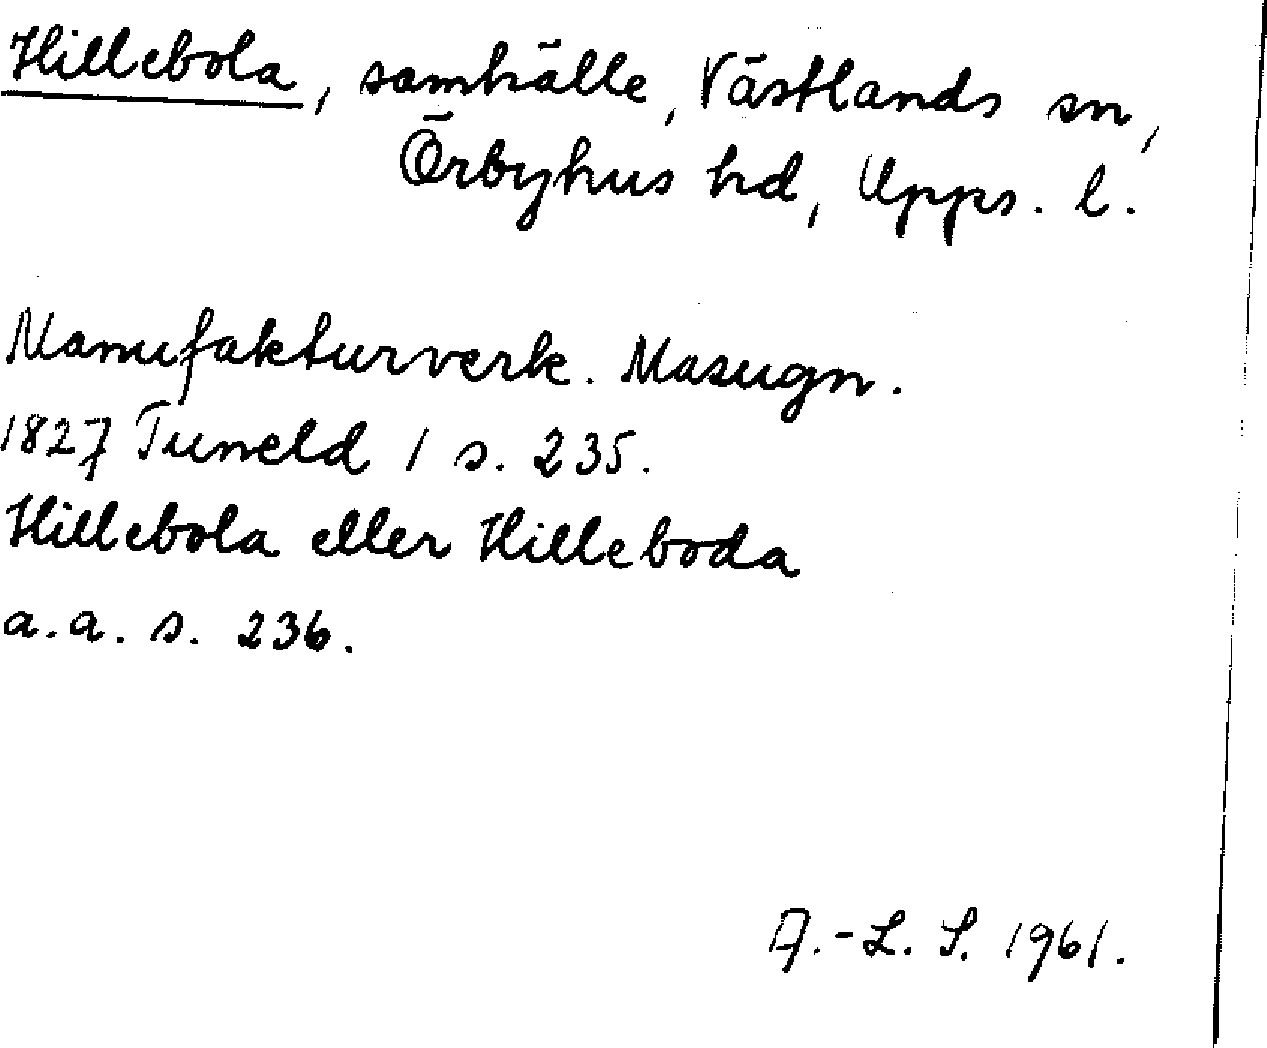 Hillebola, samhälle, Västlands sn,
Örbyhus hd, Upps. l.
Manufakturverk. Masugn.
1827 Tuneld 1 s. 235.
Hillebola eller Hilleboda
a.a. s. 236.
A.-L. S. 1961.